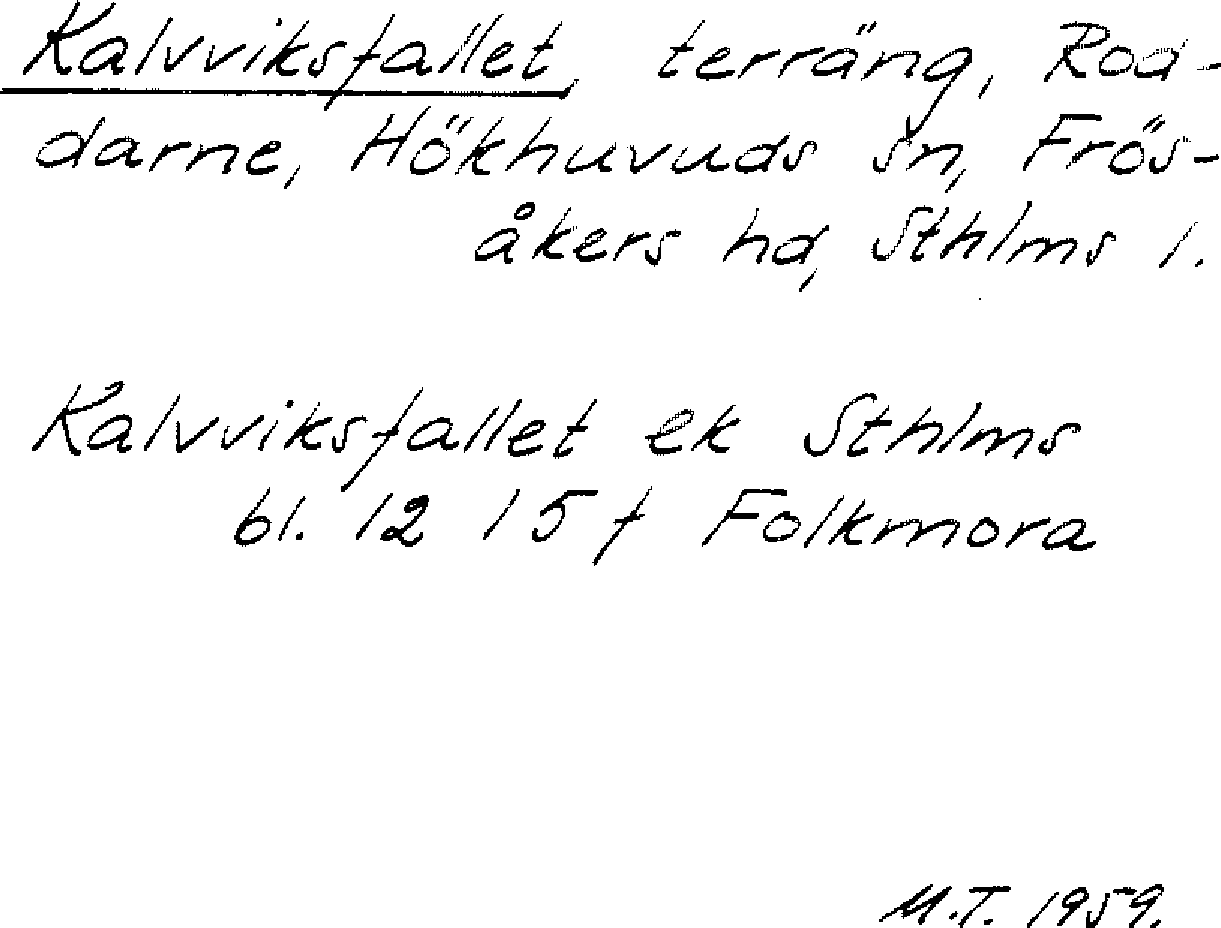 Kalvviksfallet, terräng, Rod-
darne, Hökhuvuds sn, Frös-
åkers hd, Sthlms l.
Kalvviksfallet ek Sthlms
bl. 12 I 5 f Folkmora
M.T. 1959.